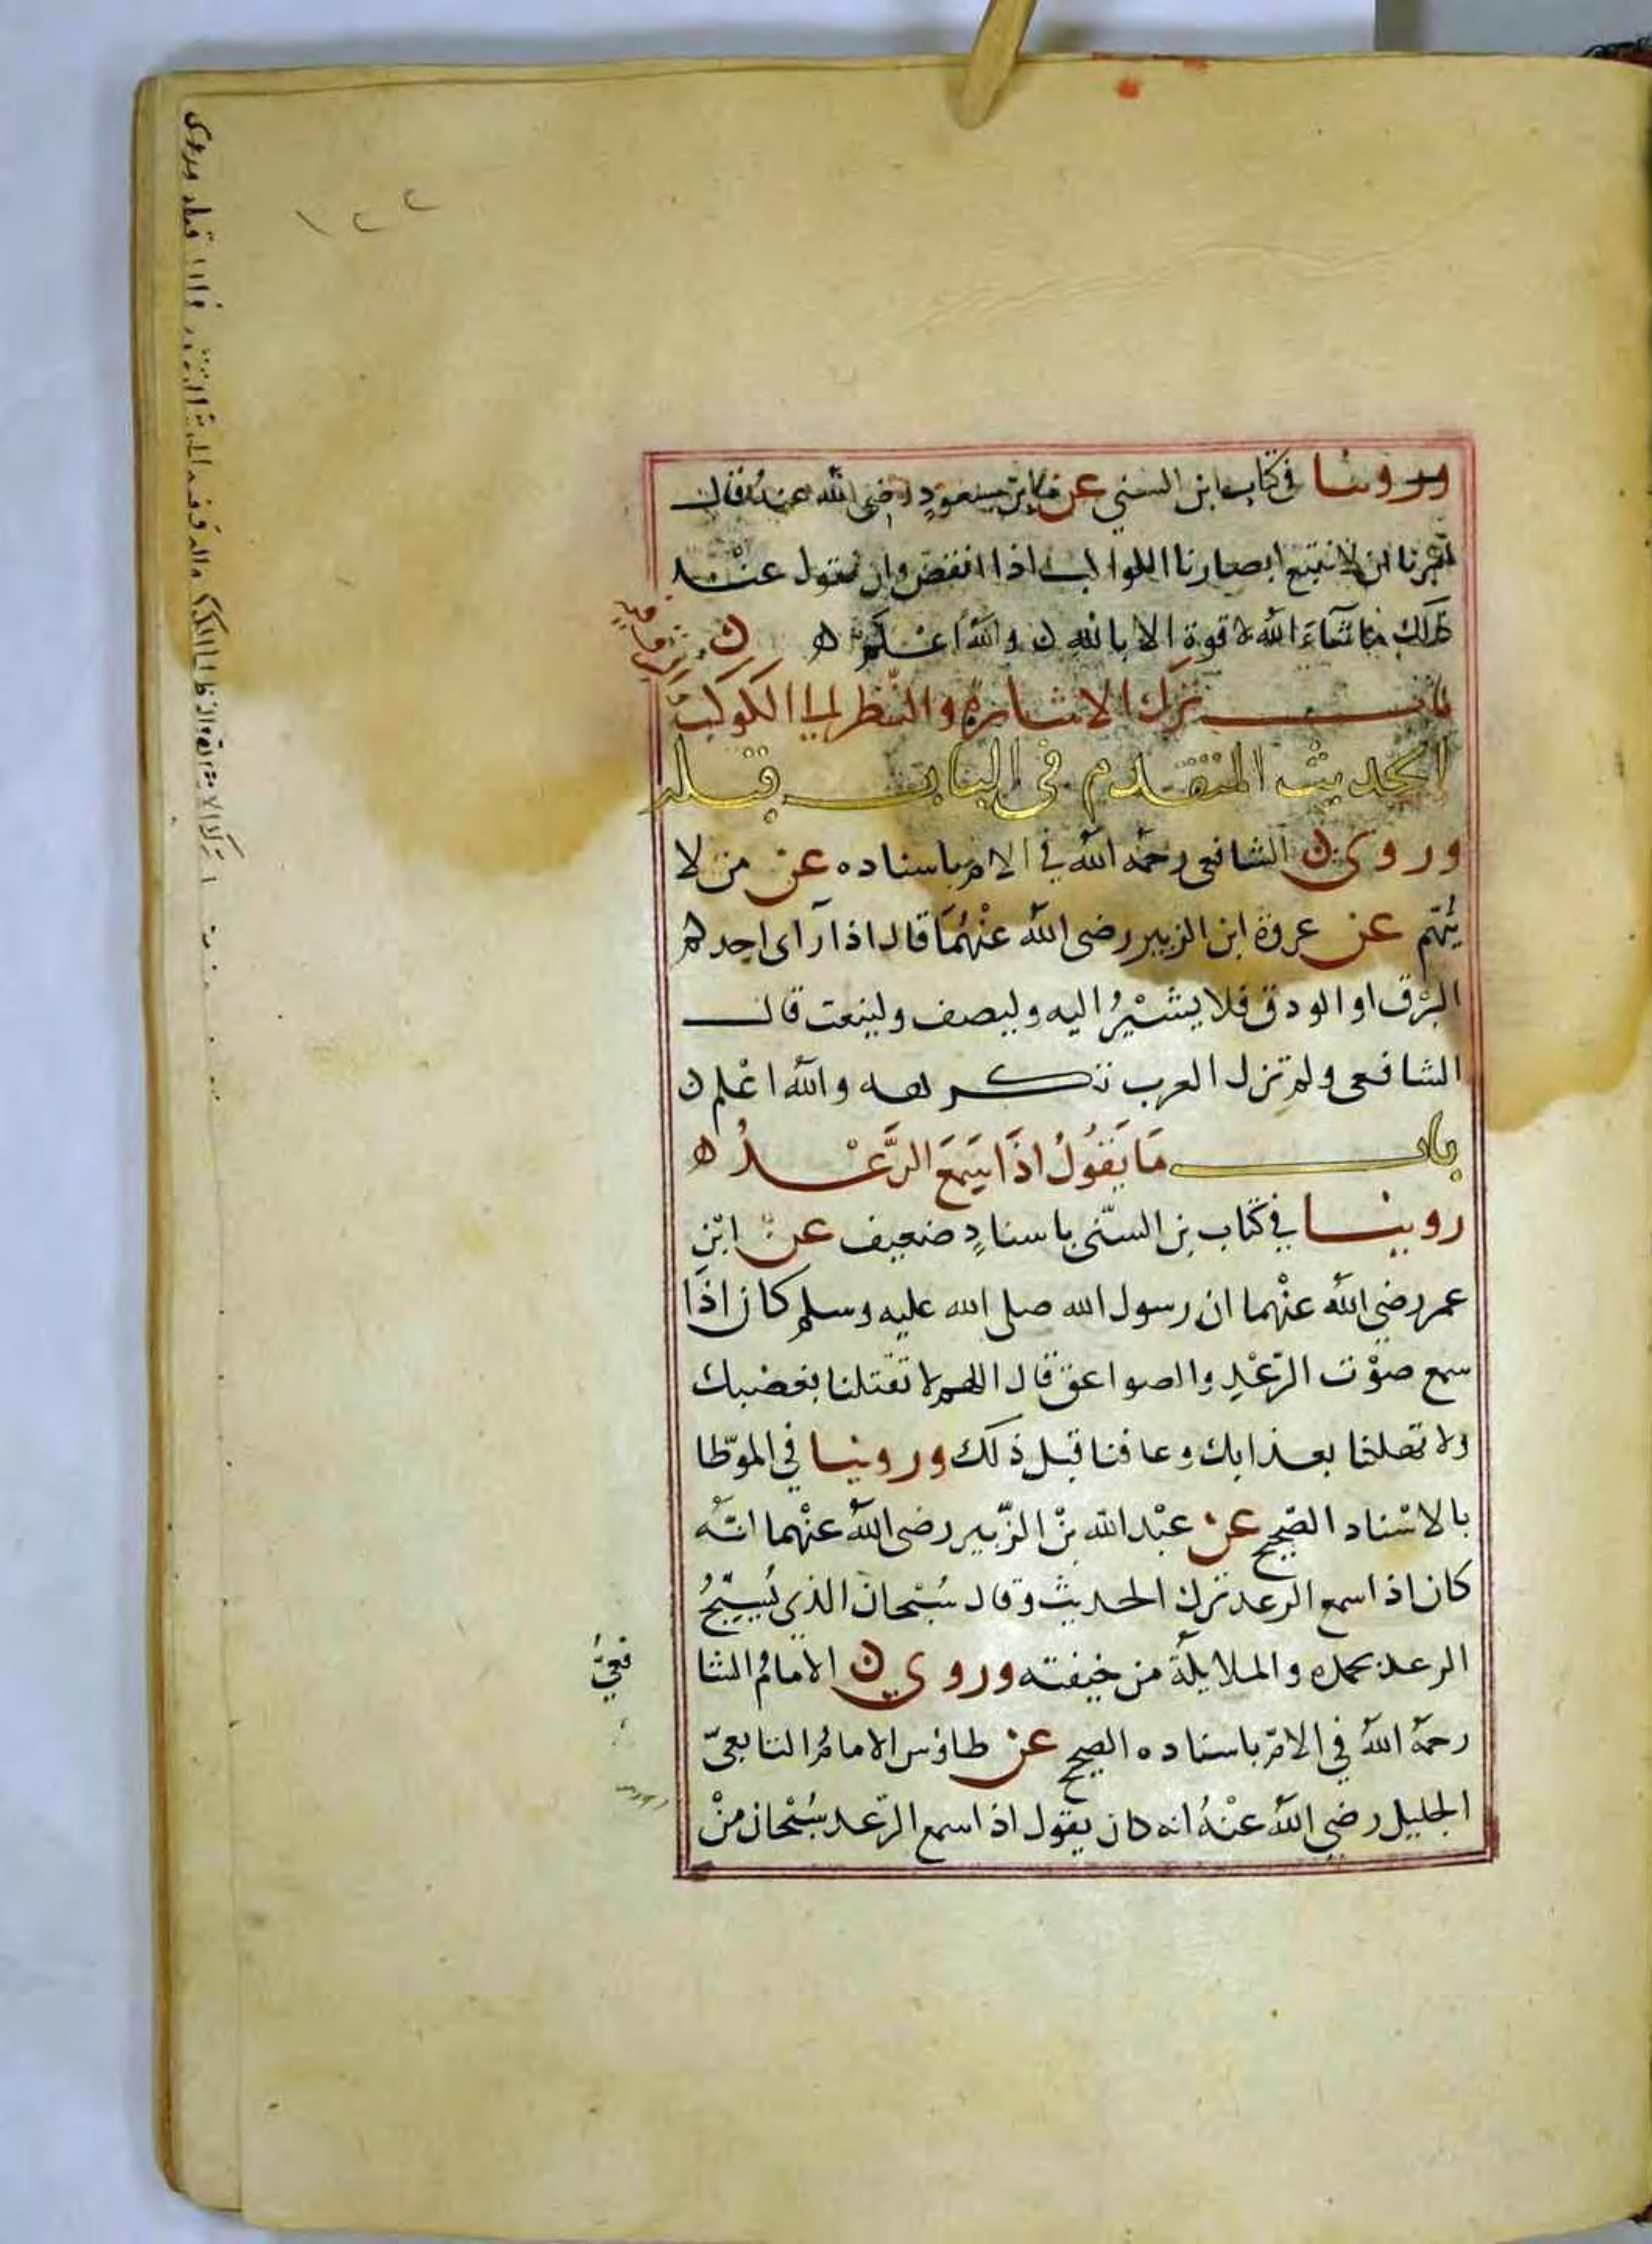 ١٢٢
وروينا في كتاب ابن السني عن ابن مسعود رضي الله عنه قال
امرنا ان لا نتبع ابصارنا الكواكب اذا انقض وان نقول عند
ذلك ما شاء الله لا قوة الا بالله ن والله اعلم ه ن
باب ترك الاشارة والنظر الى الكوكب
الحديث المتقدم في الباب قبله
وروى ن الشافعي رحمه الله في الام باسناده عن من لا
يُتّهم عن عروة ابن الزبير رضي الله عنْهُمَا قال اذا رآى احدكم
البرْق او الودق فلا يشيْرُ اليه وليصف ولينعت قال
الشافعي ولم تزل العرب تكرهه والله اعْلم ن
باب مَا يَقُولُ اذَا سَمِعَ الرَّعْدُ ه
روينا في كتاب بن السنّي باسنادٍ ضعيف عن ابْنِ
عمر رضي الله عنْهما ان رسول الله صلى الله عليه وسلم كان اذَا
سمع صوْت الرّعْدِ والصواعق قال اللهم لا تقتلنا بغضبك
ولا تهلكنا بعذابك وعافنا قبل ذلك وروينا في الموطّا
بالاسْناد الصّحيح عن عبْد الله بنْ الزّبير رضي الله عنْهما انّه
كان اذا سمع الرعد ترك الحديث وقال سُبْحان الذي يُسبّحُ
الرعد بحمده والملايكة من خيفته وروى ن الامامُ الشا
فعيُّ
رحمهُ اللهُ في الامّ باسناده الصحيح عن طاوُس الامامُ التابعيّ
الجليل رضي اللهُ عنْهُ انه كان يقول اذا سمع الرّعد سُبْحان منْ